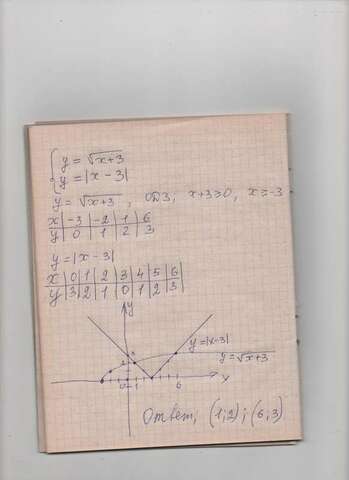 y = √x+3
y = |x – 3|
y = √x+3 , ОДЗ; x+3≥0, x ≥ -3
x | -3 | -2 | 1 | 6
y | 0 | 1 | 2 | 3
y = |x – 3|
x | 0 | 1 | 2 | 3 | 4 | 5 | 6
y | 3 | 2 | 1 | 0 | 1 | 2 | 3
y
y = |x-3|
y = √x+3
0 1 6 x
Ответ; (1;2); (6;3)